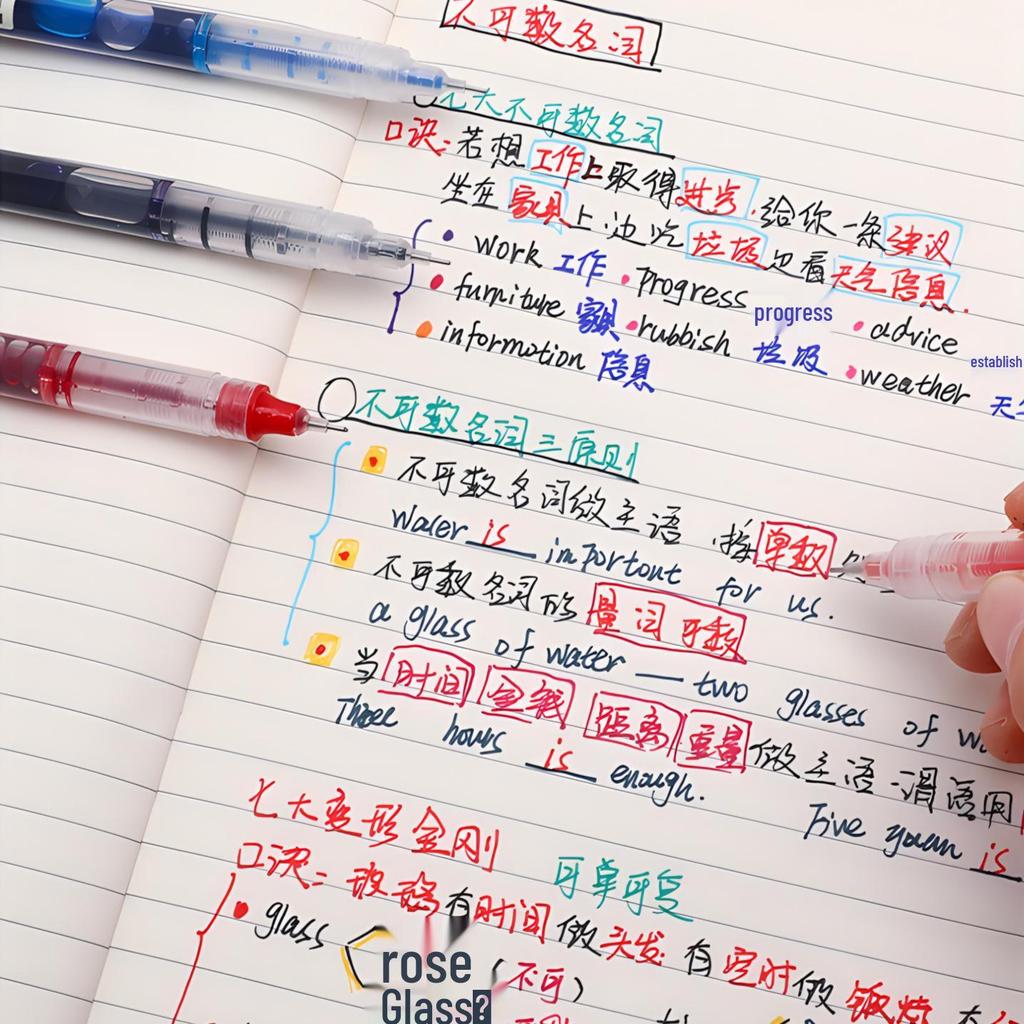 不可数名词
七大不可数名词
口诀:若想工作上取得进步,给你一条建议
坐在家具上,边吃垃圾边看天气信息.
work 工作 progress progress advice establish
furniture 家具 rubbish 垃圾 weather 天气
information 信息
不可数名词三原则
不可数名词做主语,接单数
Water is important for us.
不可数名词的量词可数
a glass of water — two glasses of
当时间 金钱 距离 重量做主语,谓语用
Three hours is enough. Five yuan is
七大变形金刚 可单可复
口诀:玻璃有时间做头发.有空时做锻炼
glass rose (不可)
Glass?